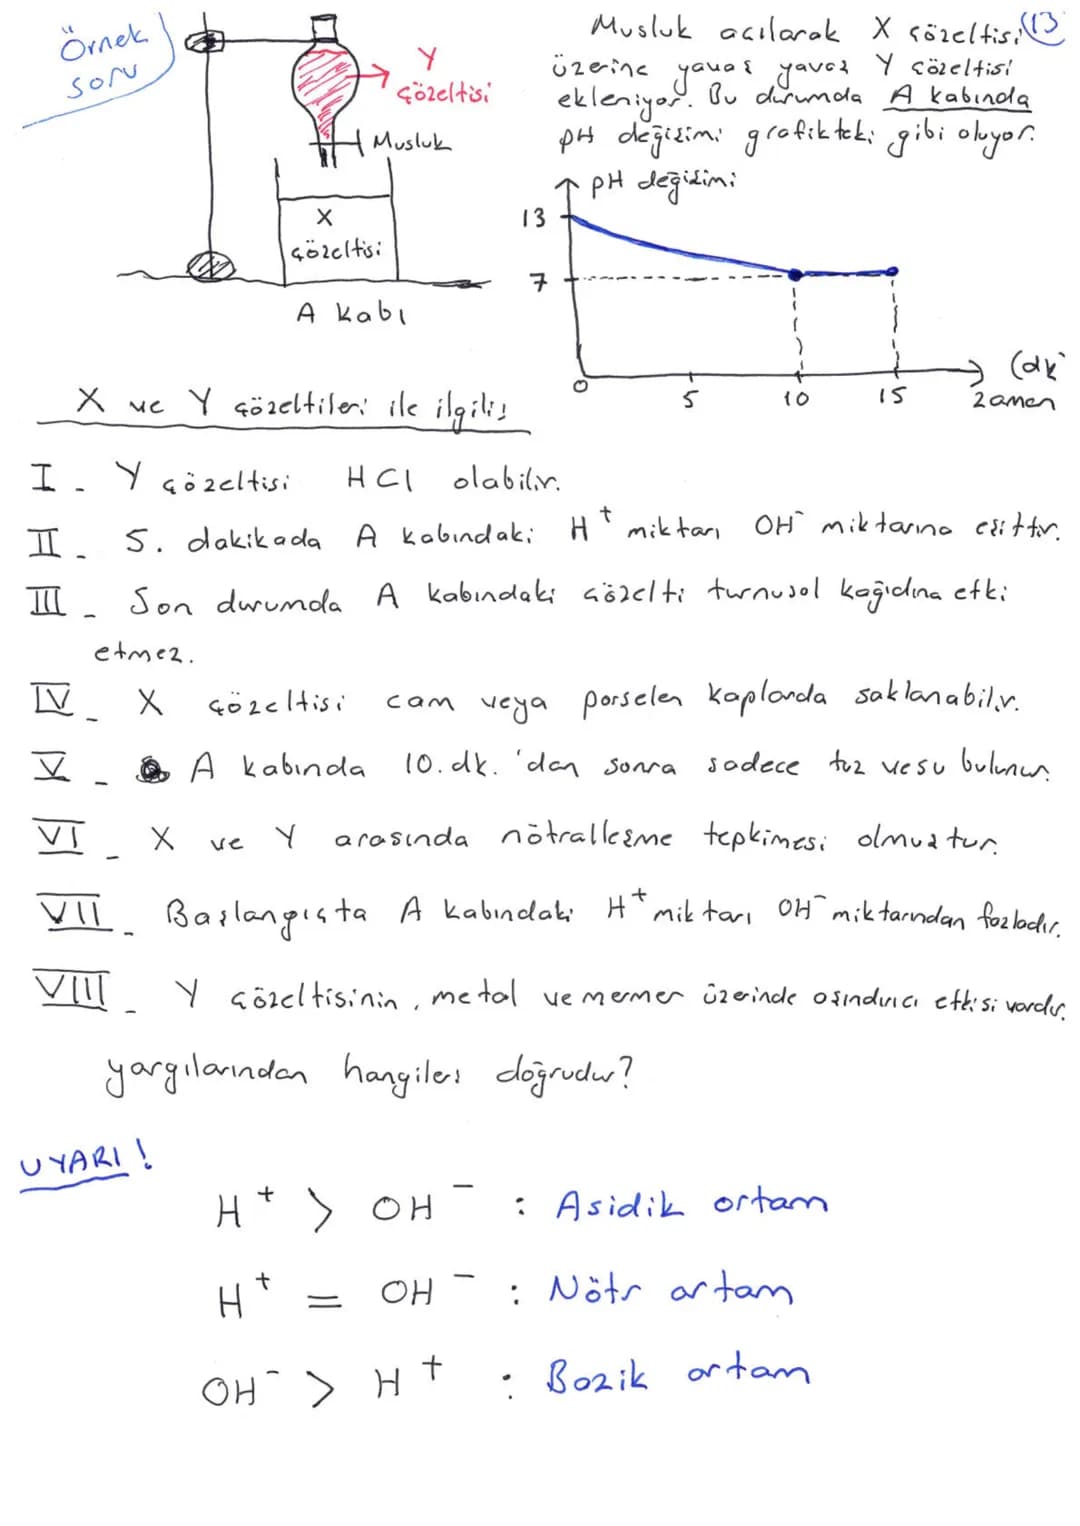 Örnek soru
Y çözeltisi
Musluk
X çözeltisi
A kabı
13
Musluk açılarak X çözeltisi
üzerine yavaş yavaş Y çözeltisi
ekleniyor. Bu durumda A kabında
pH değişimi grafikteki gibi oluyor.
pH değişimi
13
7
0 5 10 15
(dk)
zaman
X ve Y çözeltileri ile ilgili;
I. Y çözeltisi HCl olabilir.
II. 5. dakikada A kabındaki H⁺ miktarı OH⁻ miktarına eşittir.
III. Son durumda A kabındaki çözelti turnusol kağıdına etki
etmez.
IV. X çözeltisi cam veya porselen kaplarda saklanabilir.
V. A kabında 10. dk. 'dan sonra sadece tuz ve su bulunur.
VI. X ve Y arasında nötralleşme tepkimesi olmuştur.
VII. Başlangıçta A kabındaki H⁺ miktarı OH⁻ miktarından fazladır.
VIII. Y çözeltisinin, metal ve mermer üzerinde aşındırıcı etkisi vardır.
yargılarından hangileri doğrudur?
UYARI!
H⁺ > OH⁻ : Asidik ortam
H⁺ = OH⁻ : Nötr ortam
OH⁻ > H⁺ : Bazik ortam